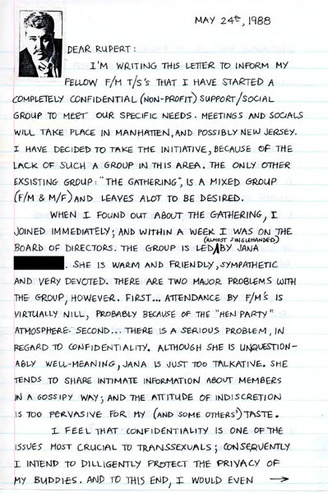 MAY 24th, 1988
DEAR RUPERT:
I'M WRITING THIS LETTER TO INFORM MY
FELLOW F/M T/S's THAT I HAVE STARTED A
COMPLETELY CONFIDENTIAL (NON-PROFIT) SUPPORT/SOCIAL
GROUP TO MEET OUR SPECIFIC NEEDS. MEETINGS AND SOCIALS
WILL TAKE PLACE IN MANHATTEN, AND POSSIBLY NEW JERSEY.
I HAVE DECIDED TO TAKE THE INITIATIVE, BECAUSE OF THE
LACK OF SUCH A GROUP IN THIS AREA. THE ONLY OTHER
EXSISTING GROUP: "THE GATHERING", IS A MIXED GROUP
(F/M & M/F) AND LEAVES ALOT TO BE DESIRED.
WHEN I FOUND OUT ABOUT THE GATHERING, I
JOINED IMMEDIATELY; AND WITHIN A WEEK I WAS ON THE
BOARD OF DIRECTORS. THE GROUP IS LED (ALMOST SINGLEHANDED) BY JANA
. SHE IS WARM AND FRIENDLY, SYMPATHETIC
AND VERY DEVOTED. THERE ARE TWO MAJOR PROBLEMS WITH
THE GROUP, HOWEVER. FIRST... ATTENDANCE BY F/M's IS
VIRTUALLY NILL, PROBABLY BECAUSE OF THE "HEN PARTY"
ATMOSPHERE. SECOND... THERE IS A SERIOUS PROBLEM, IN
REGARD TO CONFIDENTIALITY. ALTHOUGH SHE IS UNQUESTION-
ABLY WELL-MEANING, JANA IS JUST TOO TALKATIVE. SHE
TENDS TO SHARE INTIMATE INFORMATION ABOUT MEMBERS
IN A GOSSIPY WAY; AND THE ATTITUDE OF INDISCRETION
IS TOO PERVASIVE FOR MY (AND SOME OTHERS') TASTE.
I FEEL THAT CONFIDENTIALITY IS ONE OF THE
ISSUES MOST CRUCIAL TO TRANSSEXUALS; CONSEQUENTLY
I INTEND TO DILLIGENTLY PROTECT THE PRIVACY OF
MY BUDDIES. AND TO THIS END, I WOULD EVEN →